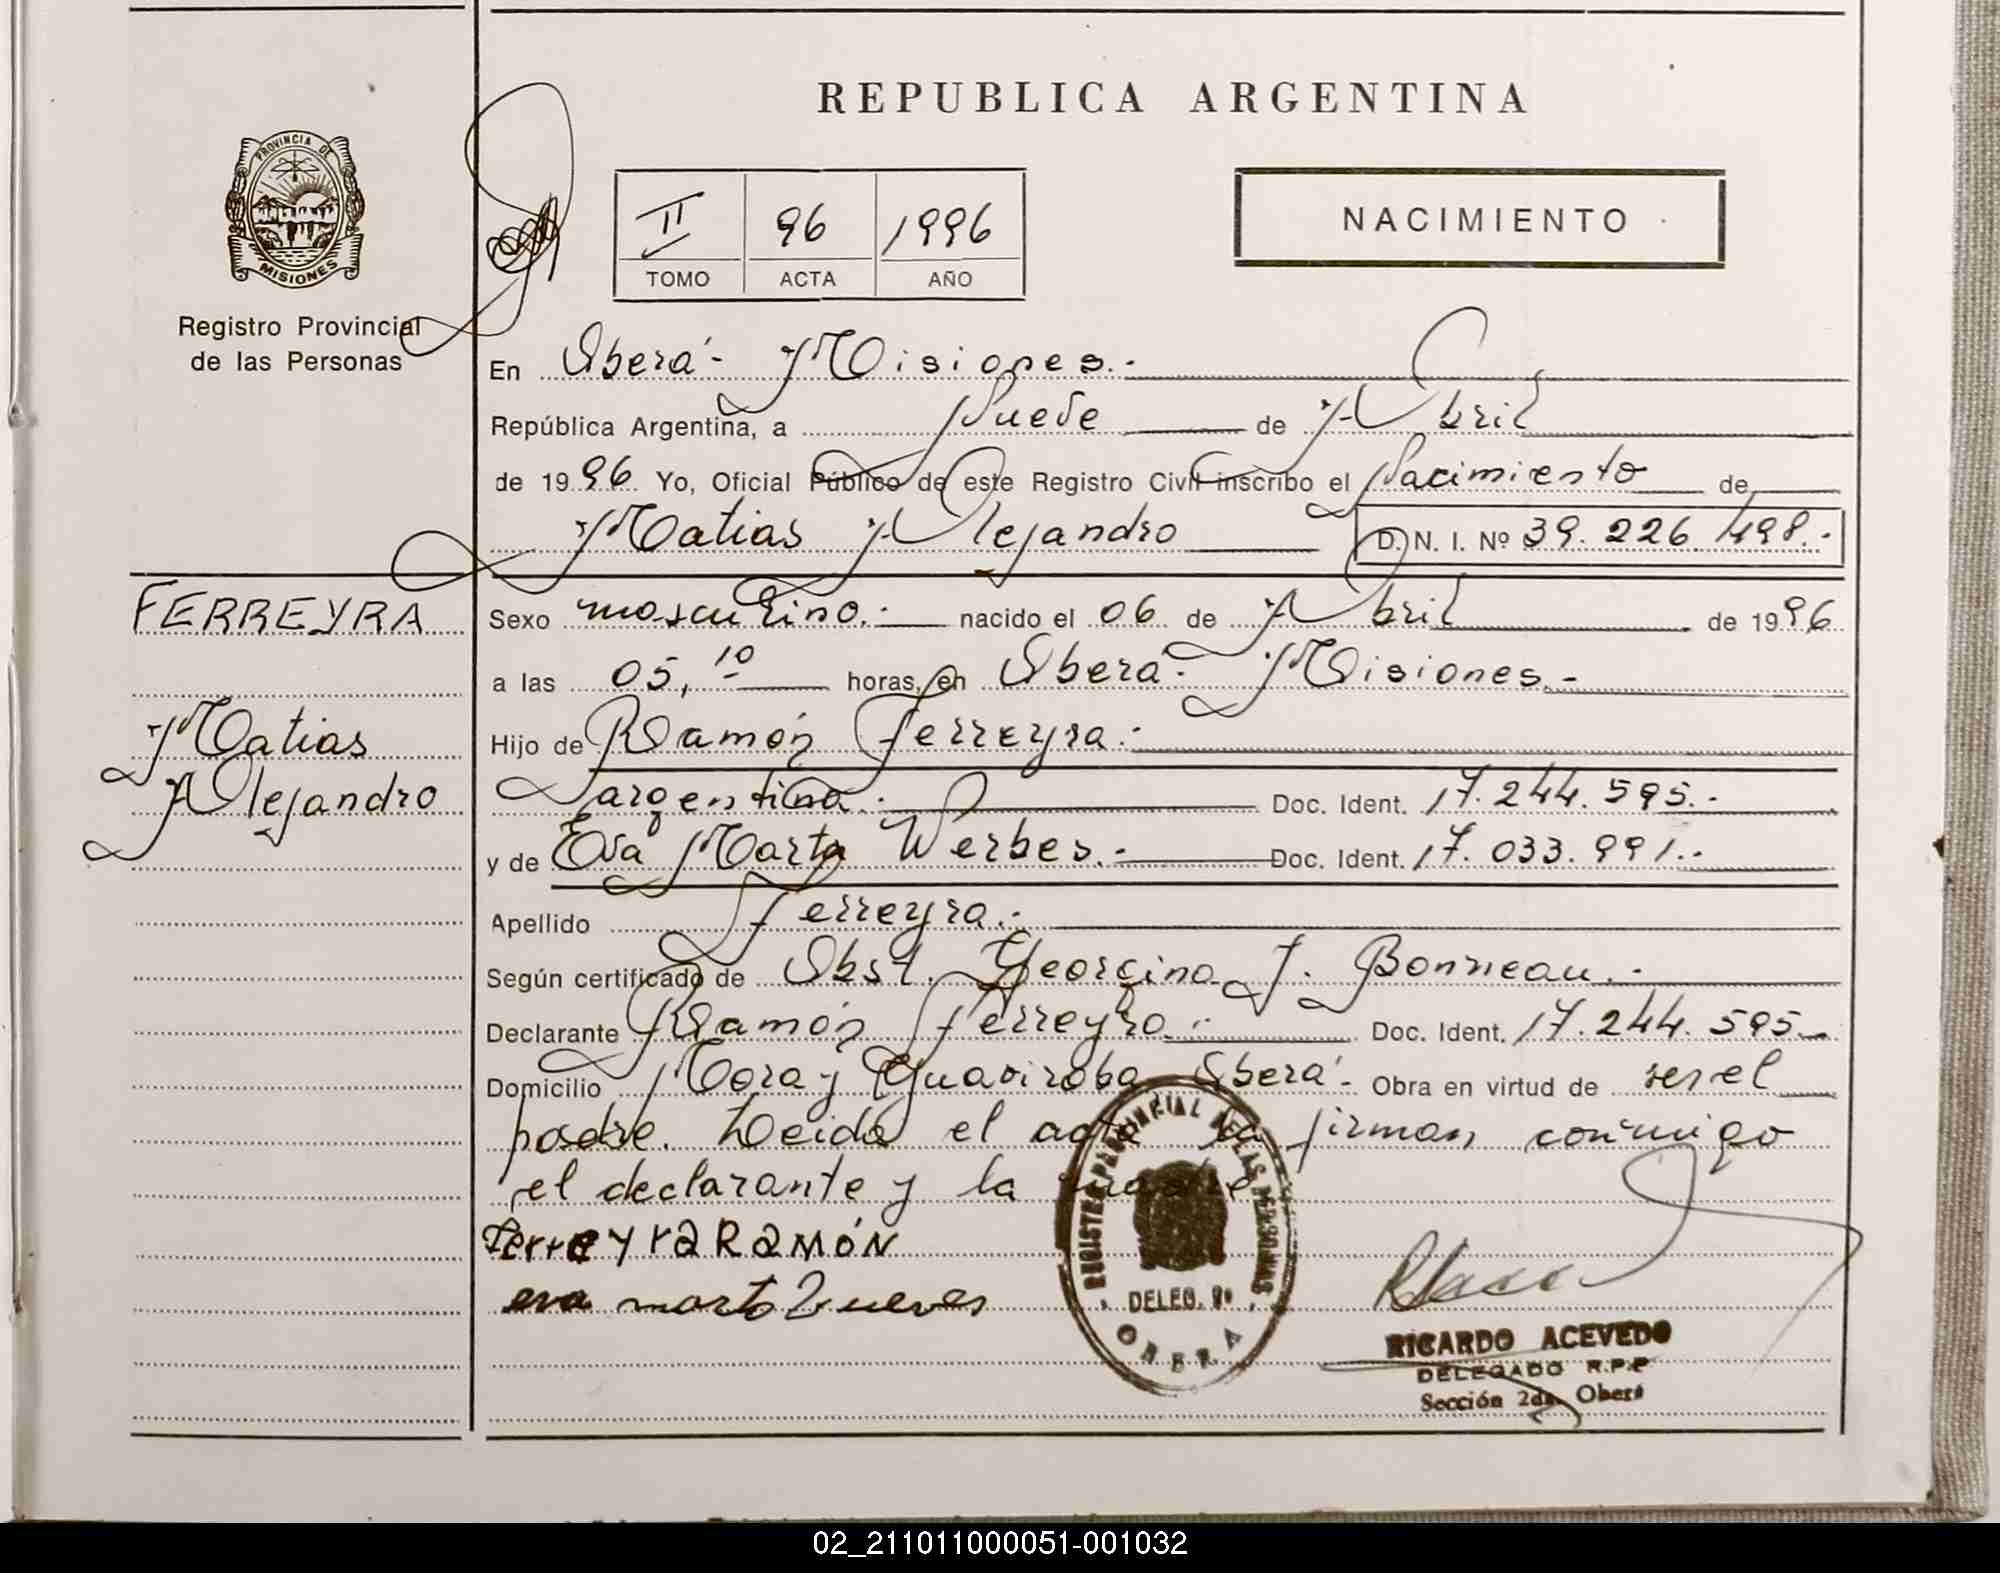 REPUBLICA ARGENTINA
PROVINCIA DE
MISIONES
Registro Provincial
de las Personas
II 96 1996
TOMO ACTA AÑO
NACIMIENTO
En Oberá - Misiones.-
República Argentina, a Nueve de Abril
de 1996 Yo, Oficial Público de este Registro Civil inscribo el Nacimiento de
Matias Alejandro D. N. I. Nº 39.226.498.-
FERREYRA
Matias
Alejandro
Sexo masculino.- nacido el 06 de Abril de 1996
a las 05,10 horas, en Oberá - Misiones.-
Hijo de Ramón Ferreyra.-
argentina.- Doc. Ident. 17.244.595.-
y de Eva Marta Werbes.- Doc. Ident. 17.033.991.-
Apellido Ferreyra.-
Según certificado de Obst. Georgina J. Bonneau.-
Declarante Ramón Ferreyra.- Doc. Ident. 17.244.595.-
Domicilio Mora y Guaviroba Oberá - Obra en virtud de ser el
padre. Leída el acta la firman conmigo
el declarante y la madre
Ferreyra RAMÓN
eva marta
REGISTRO PROVINCIAL DE LAS PERSONAS
DELEG.
OBERA
RICARDO ACEVEDO
DELEGADO R.P.P
Sección 2da. Oberá
02_211011000051-001032